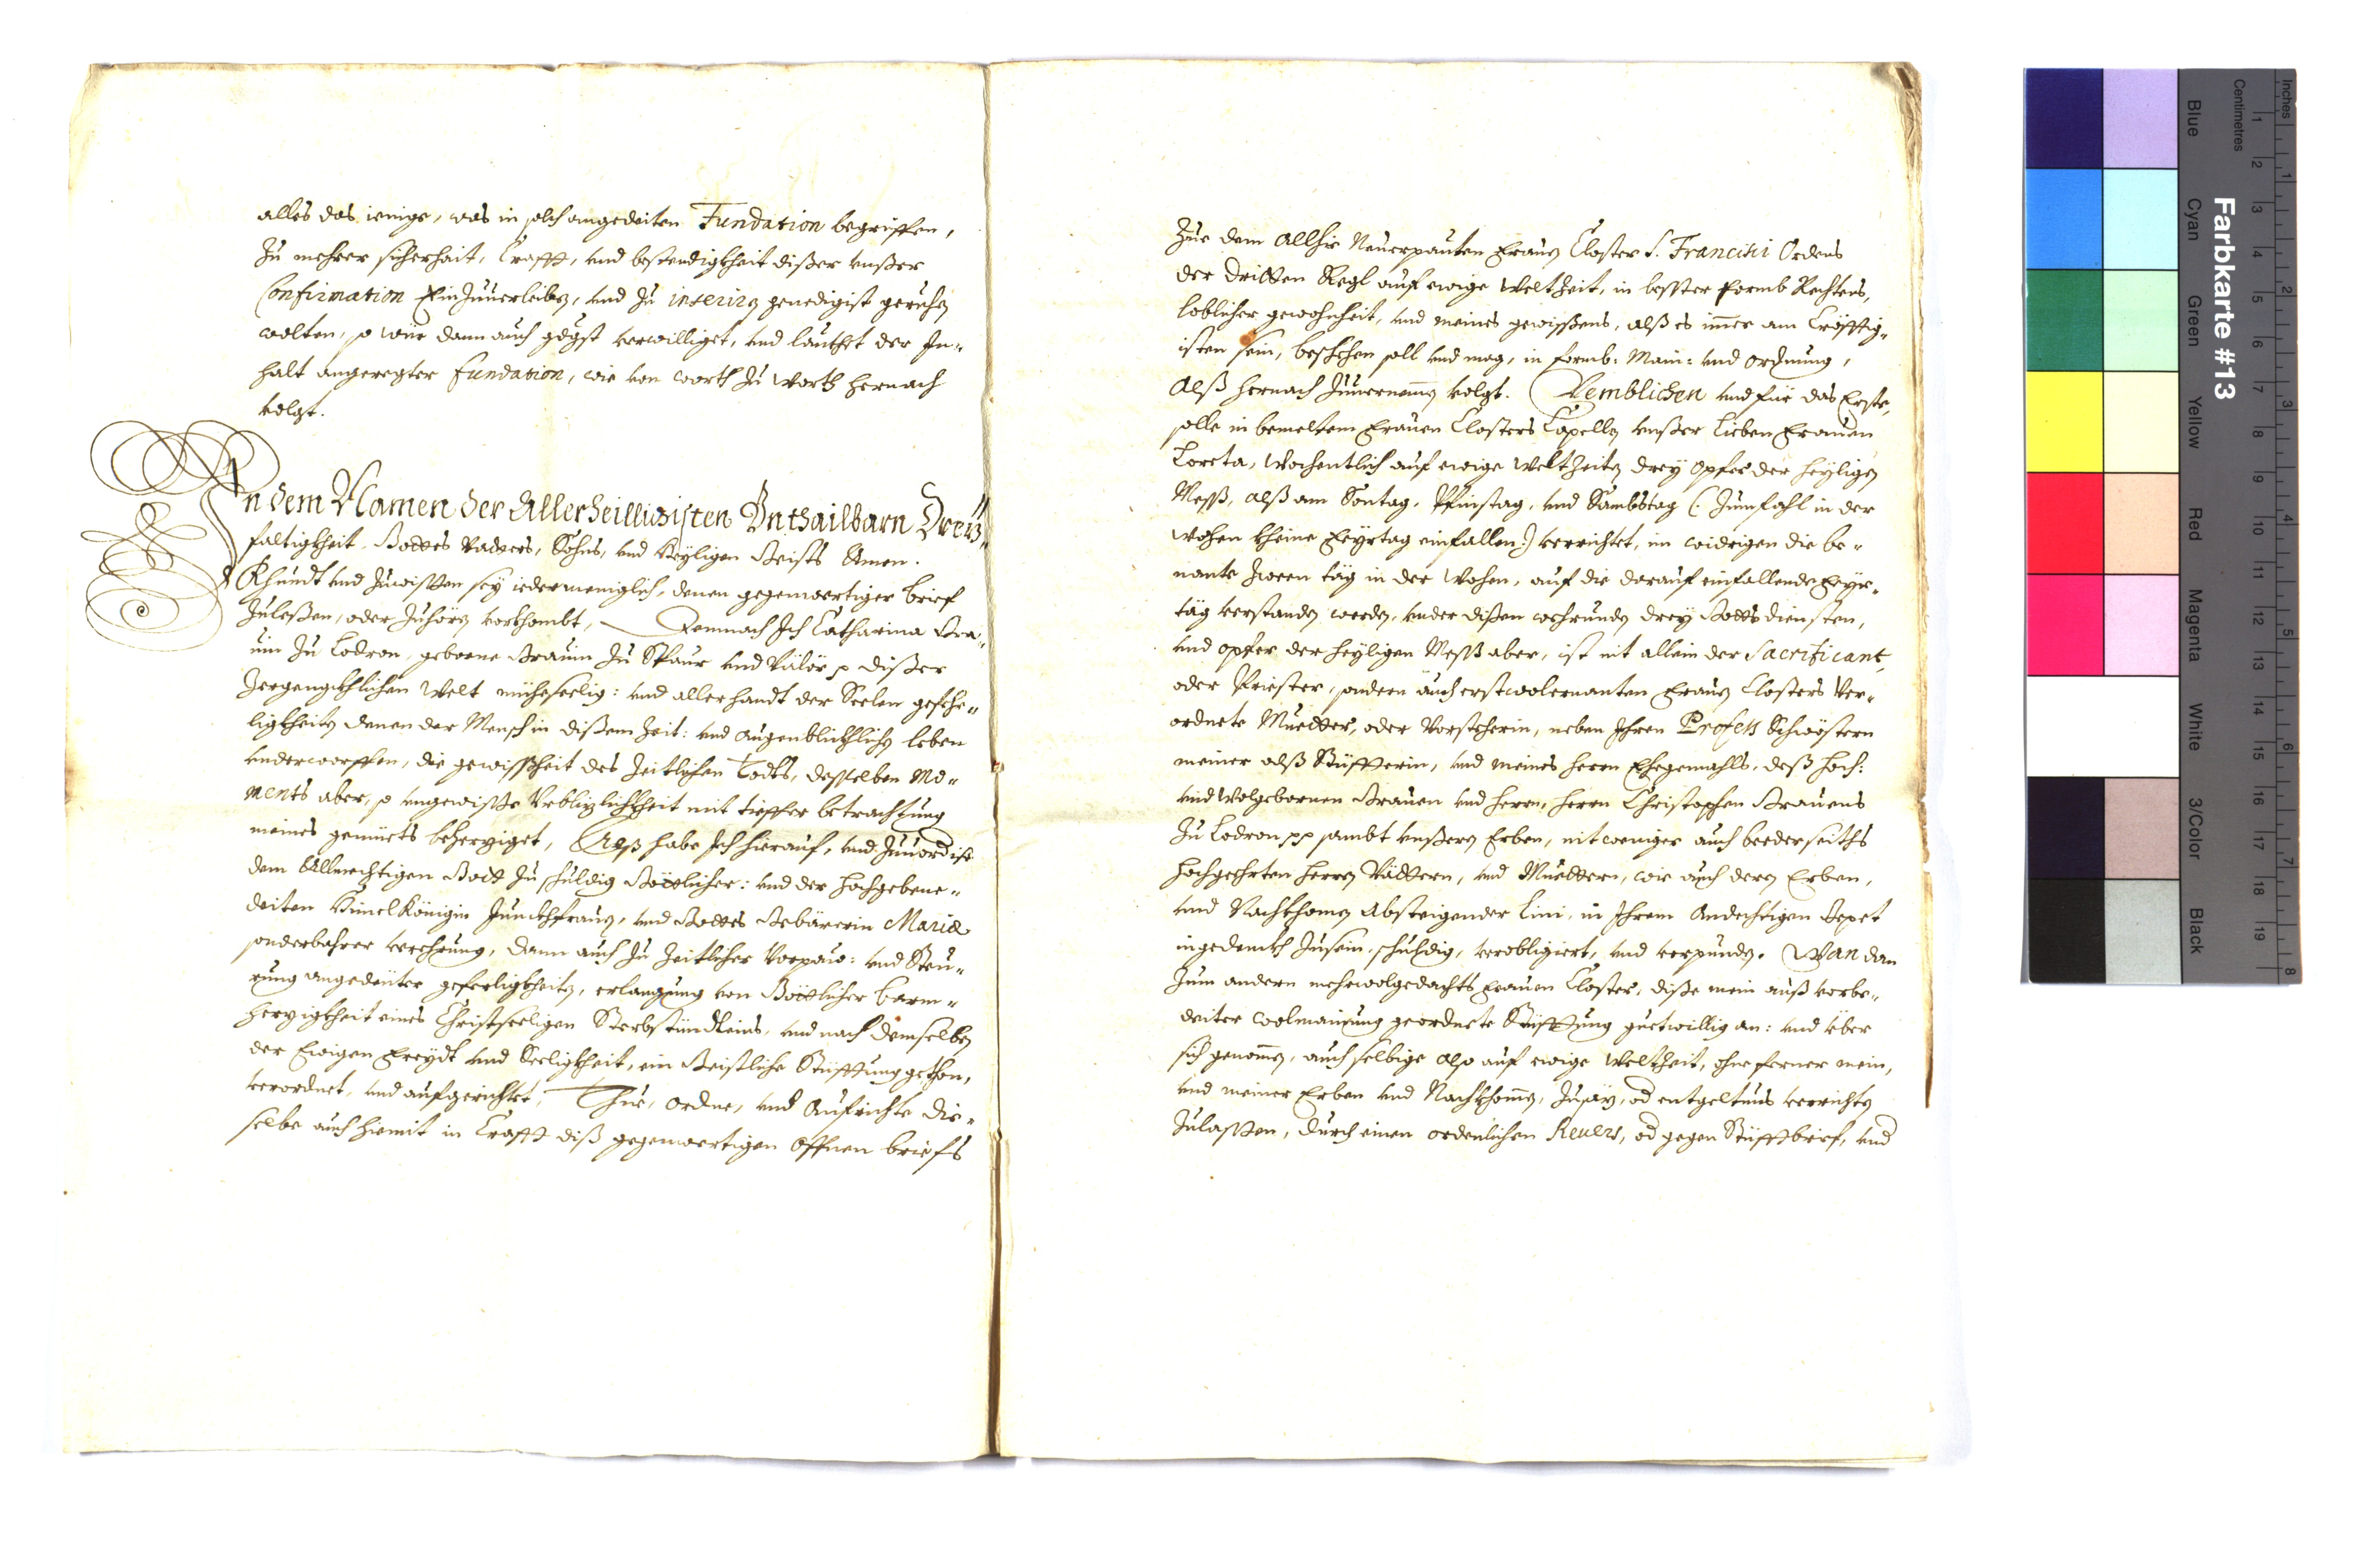 alles das ienige, was in solch angedeiten Fundation begriffen,
Zu mehrer sicherhait, Crafft, vnd bestendigkheit dißer vnßer
Confirmation Einzuuerleiben, vnd Zu inseriren genedigist geruhen
wolten, so wür dann auch gdgst verwilliget, vnd lauthet der In¬
halt angeregter fundation, wie von worth Zu worth hernach
volgt.
In dem Namen der Allerheilligisten Vnthailbarn Dreÿ¬
faltigkheit. Gottes Vatters, Sohns, vnd Heÿligen Geists Amen.
Khundt vnd Zuwissen seÿ iedermeniglich, denen gegenwertiger brief
Zuleßen, oder Zuhörn vorkhombt, Demnach Ich Catharina Grä¬
uin Zu Lodron, geborne Gräuin Zu Spaur vnd Välör p dißer
Zergengkhlichen Welt mühseelig: vnd allerhandt der Seelen gefehr¬
ligkheiten denen der Mensch in dißem Zeit: vnd augenblickhlichen leben
vnderworffen, die gewißheit des Zeitlichen Todts, desselben Mo¬
ments aber, so vngewisse Vrblizlichkheit mit tieffer betrachtung
meines gemüets beherziget, Alß habe Ich hierauf, vnd Zuuordist
dem Allmechtigen Gott Zu schuldig Göttlicher: vnd der hochgebene¬
deiten Himel Königin Junckhfrauen, vnd Gottes Gebärerin Mariæ
sonderbahrer verehrung, dann auch Zu Zeitlicher Vorpaw: vnd Steu¬
rung angedeuter gefeerligkheiten, erlangung von Göttlicher barm¬
herzigkheit eines Christseeligen Sterbstündtleins, vnd nach demselben
der Ewigen Freÿdt vnd Seeligkheit, ein Geistliche Stüfftung gethon,
verordnet, vnd aufgerichtet, Thue, ordne, vnd Aufrichte die¬
selbe auch hiemit in Crafft diß gegenwertigen offnen briefs
Zue dem Allhie Neuerpauten Frauen Closter S. Francisci Ordens
der dritten Regl auf ewige Weltzeit, in besster formb Rechtens,
loblicher gewohnheit, vnd meines gewißens, alß es imer am Crefftig¬
isten sein, beschehen soll vnd mag, in formb: Main: vnd ordnung,
Alß hernach Zuuernemen volgt. Nemblichen vnd für das Erste,
solle in bemeltem Frauen Closters Capellen vnßer lieben Frauen
Loreta, Wochentlich auf ewige Weltzeiten dreÿ opfer der heÿligen
Mess, alß am Sontag, Pfinstag, vnd Sambstag (: Zumfahl in der
Wohen kheine Feÿrtag einfallen:) verrichtet, im widrigen die be¬
nante Zween täg in der Wohen, auf die darauf einfallende Feÿr¬
täg verstanden werden, vnder dißen wehrunden dreÿ Gottsdiensten,
vnd opfer der heÿligen Mess aber, ist nit allein der Sacrificant,
oder Priester, sondern auch erstwolernanten Frauen Closters Ver¬
ordnete Muetter, oder Vorsteherin, neben Ihren Profess Schwöstern
meiner alß Stüffterin, vnd meines herrn Ehegemahls, deß hoch:
vnd Wolgebornen Grauen vnd herrn, herrn Christophen Grauens
Zu Lodron pp sambt vnßern Erben, nit weniger auch beederseiths
hochgeehrten herrn Vättern, vnd Müettern, wie auch deren Erben,
vnd Nachkhomen Absteigender lini, in Ihrem Andechtigen Gepet
ingedenkh Zusein, schuldig, verobligiert, vnd verpunden. Wan dan
Zum andern mehrwolgedachts Frauen Closter, diße mein auß vorbe¬
deiter wolmainung geordnete Stüfftung guetwillig an: vnd über
sich genomen, auch selbige also auf ewige Weltzeit, ohne ferner mein,
vnd meiner Erben vnd Nachkhomen, od entgeltnus verrichten
Zulassen, durch einen ordenlichen Reuers, od gegen Stüfftbrief, vnd
Farbkarte #13
Inches
Centimetres
Blue
Cyan
Green
Yellow
Red
Magenta
White
3/Color
Black
1 2 3 4 5 6 7 8 9 10 11 12 13 14 15 16 17 18 19
1 2 3 4 5 6 7 8